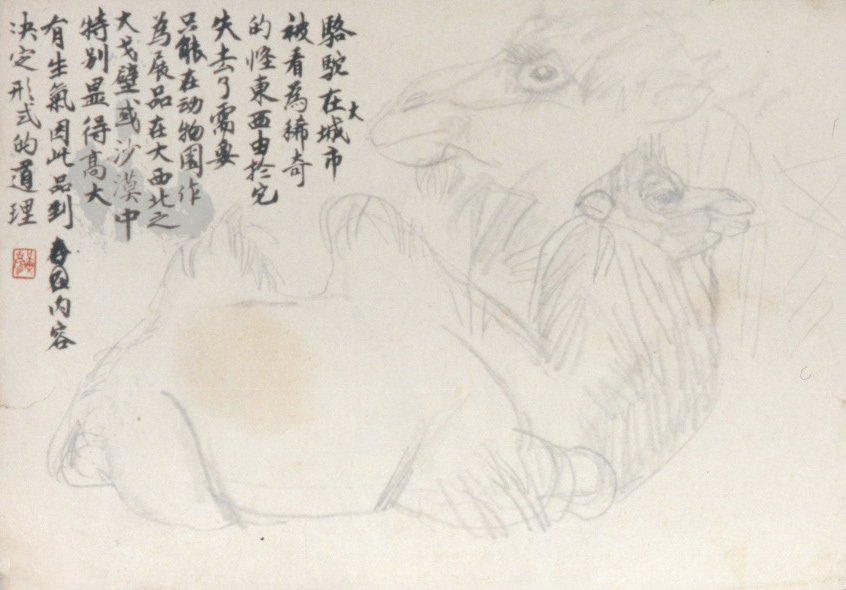 駱駝在大城市
被看為稀奇
的怪東西由於它
失去了需要
只能在动物園作
為展品在大西北之
大戈壁或沙漠中
特别显得高大
有生氣因此品到内容
决定形式的道理